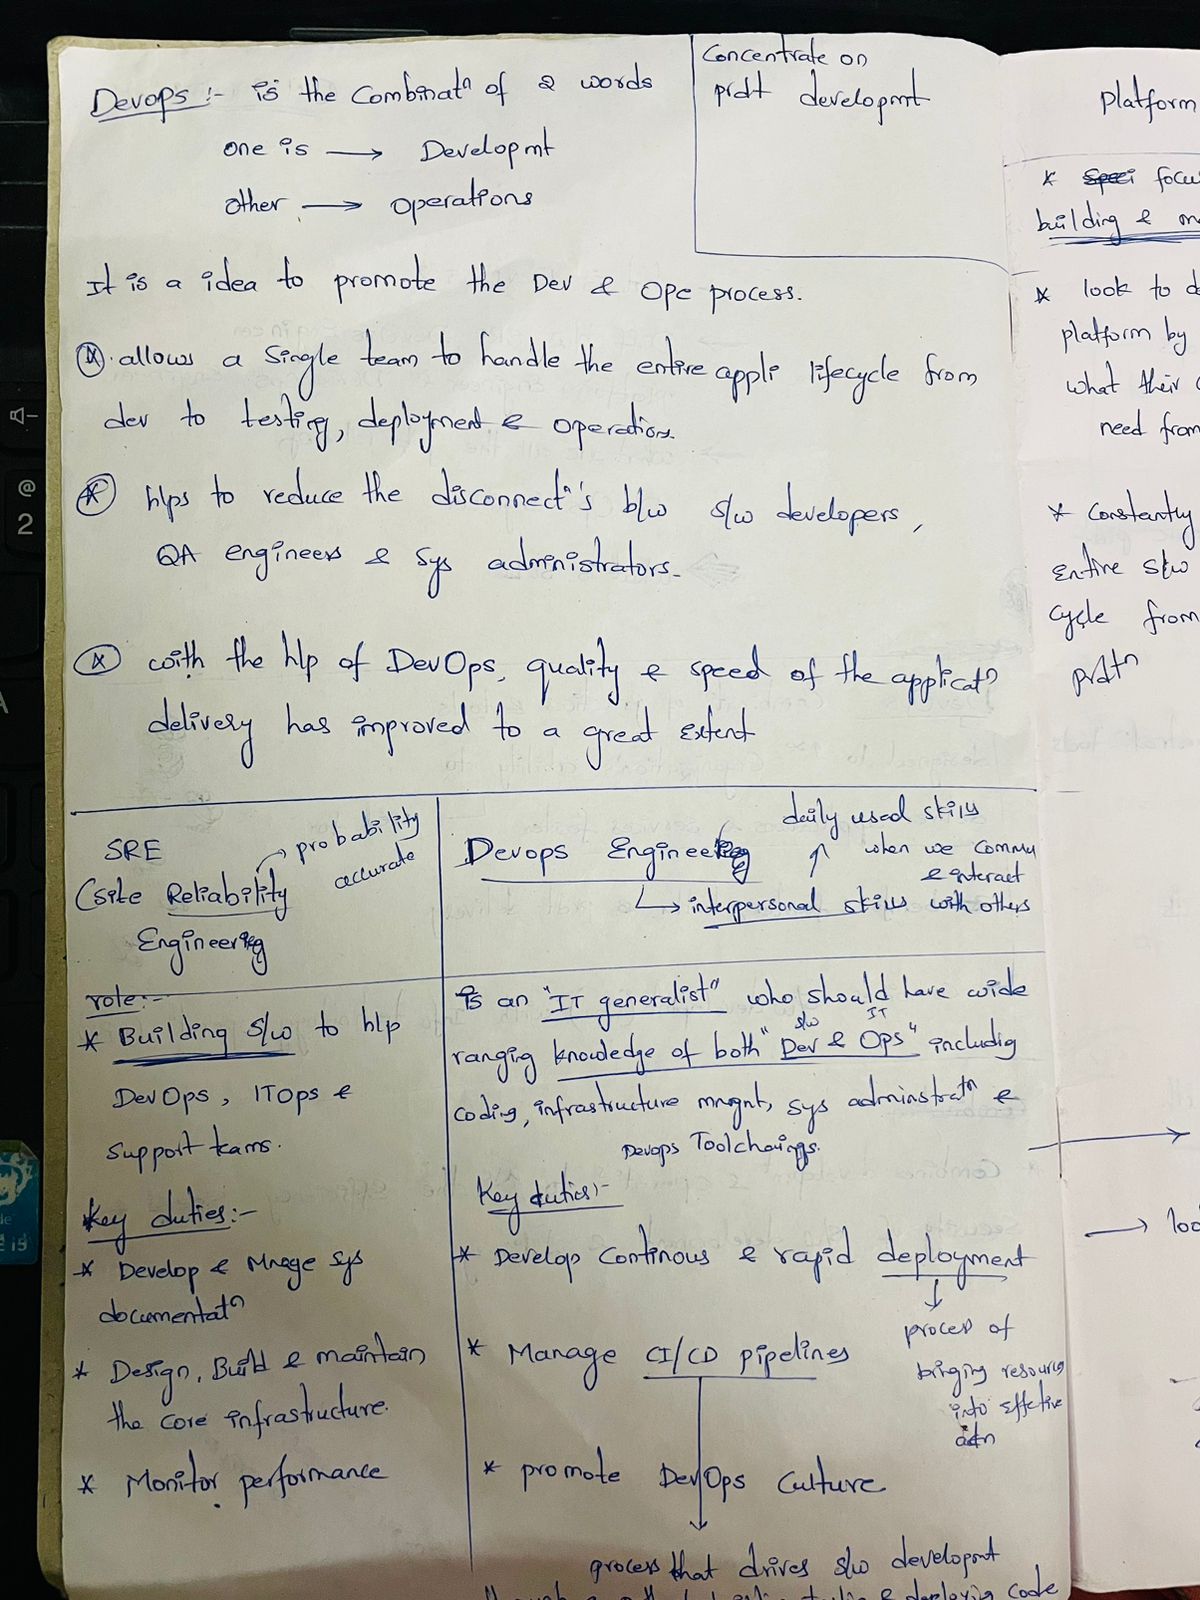 Devops :- is the Combinatn of 2 words
one is → Developmt
other → operations
Concentrate on
prdt developmt
It is a idea to promote the Dev & Ope process.
* allows a Single team to handle the entire appli lifecycle from
dev to testing, deployment & operations.
* hlps to reduce the disconnectn's b/w s/w developers,
QA engineers & Sys administrators.
* with the hlp of DevOps, quality & speed of the applicatn
delivery has improved to a great extent
SRE
(site Reliability
Engineering
→ probability
accurate
role:-
* Building s/w to hlp
DevOps, ITOps &
Support teams.
Key duties:-
* Develop & Mnege sys
documentatn
* Design, Build & maintain
the core infrastructure.
* Monitor performance
Devops Engineering
daily used skills
when we Commu
& interact
→ interpersonal skills with others
is an "IT generalist" who should have wide
s/w IT
ranging knowledge of both "Dev & Ops" includig
coding, infrastructure mngnt, sys adminstratn &
Devops Toolchaings.
Key duties:-
* Develop Continous & rapid deployment
process of
bringing resources
into effetive
actn
* Manage CI/CD pipelines
* promote DevOps Culture
process that drives s/w developmt
& deployig code
Platform
* focus
building &
* look to
platform by
what their
need from
* Constantly
entire s/w
cycle from
prdtn
→
→ loo
@
2